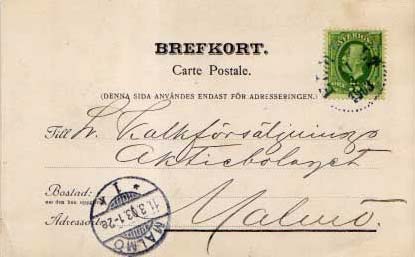 BREFKORT.
Carte Postale.
(DENNA SIDA ANVÄNDES ENDAST FÖR ADRESSERINGEN.)
SVERIGE
Till Kalkförsäljnings
Aktiebolaget
Bostad:
Adressort: Malmö.
* 1 *
11.3.03.1-2e
MALMÖ